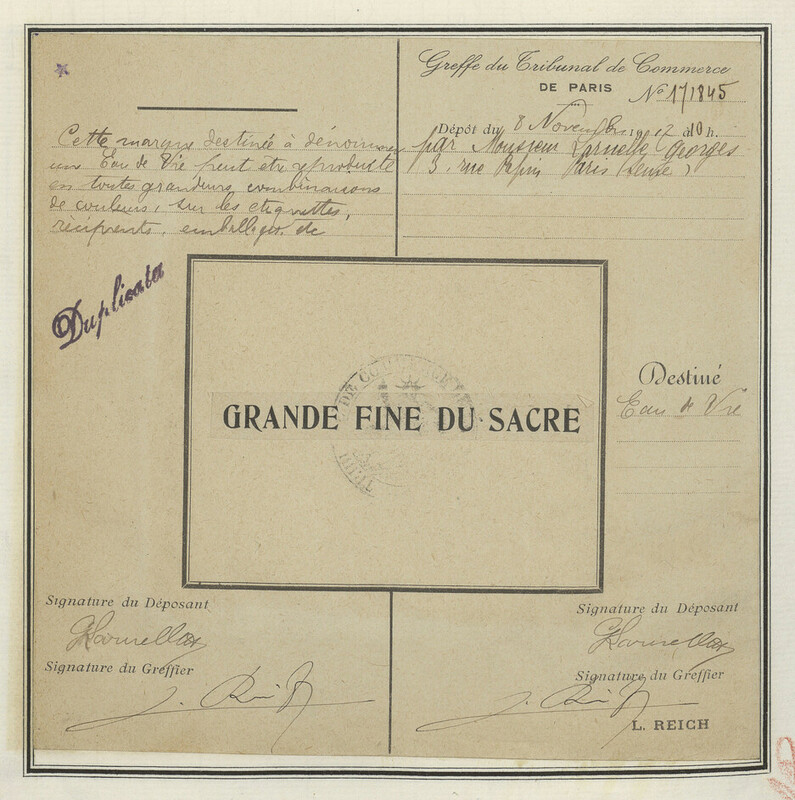 Cette marque destinée à dénommer
un Eau de Vie peut etre reproduite
en toutes grandeurs, combinaisons
de couleurs, sur les etiquettes,
récipients, emballages, etc
Duplicata
Greffe du Tribunal de Commerce
DE PARIS
No 171845
Dépôt du 8 Novembre 1917 à 10 h.
par Monsieur Georges
3, rue Paris (Seine)
GRANDE FINE DU SACRE
DE COMMERCE
TRIB
Destiné
Eau de Vie
Signature du Déposant
Signature du Greffier
Signature du Déposant
Signature du Greffier
L. REICH